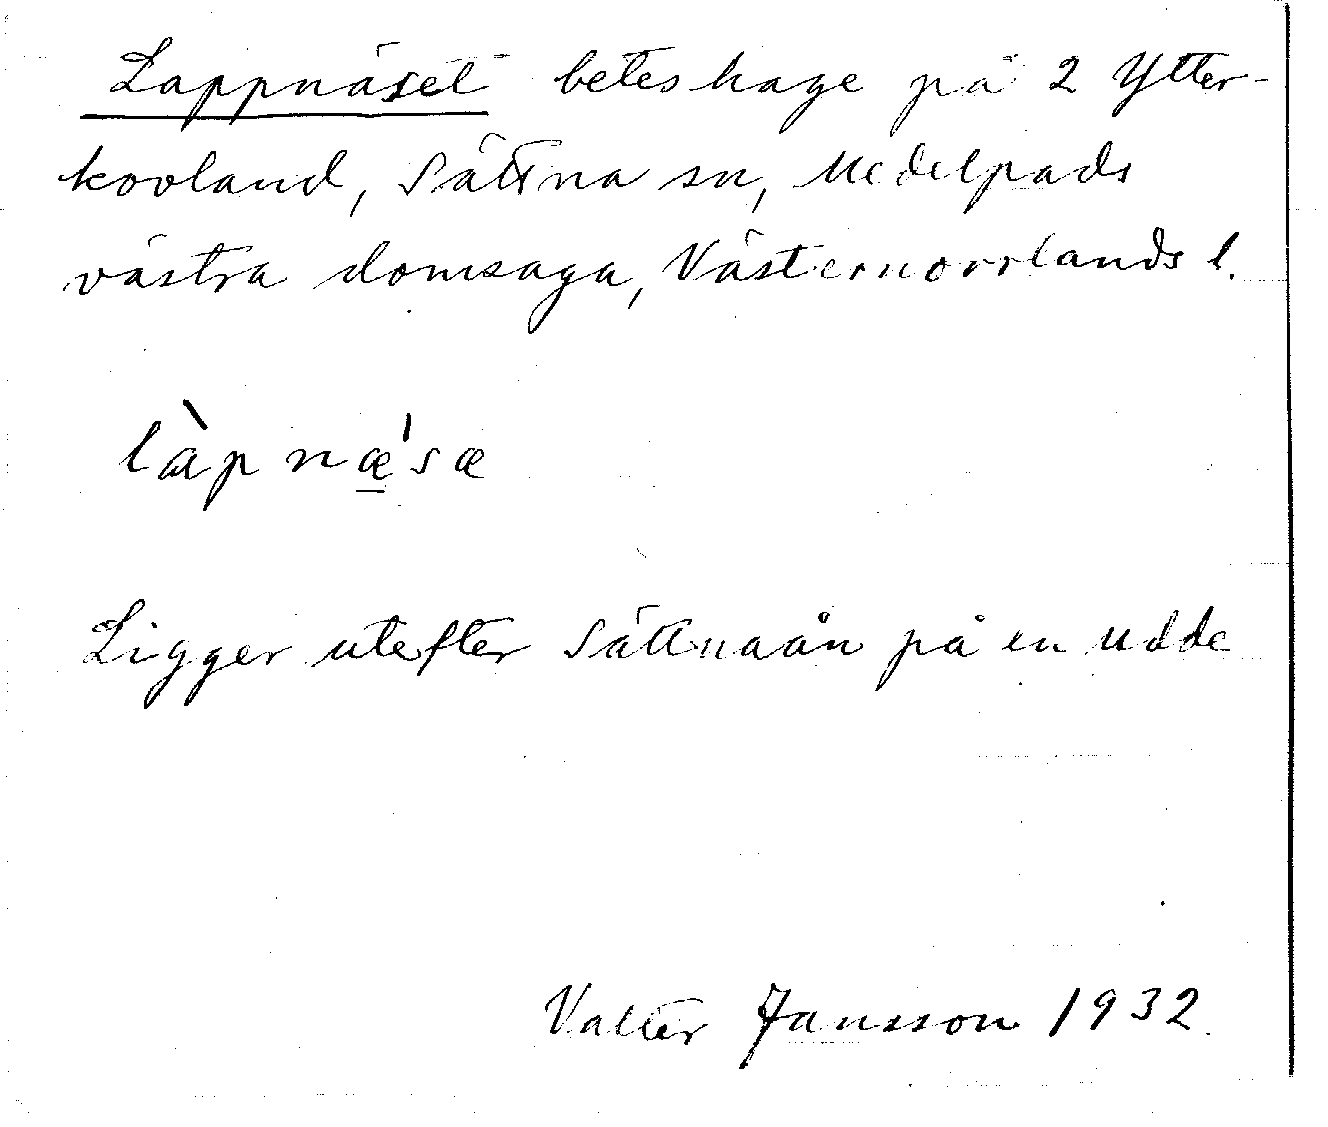 Lappnäset beteshage på 2 Ytter-
kovland, Sättna sn, Medelpads
västra domsaga, Västernorrlands l.
làpnæ̱ˈsæ
Ligger utefter Sättnaån på en udde
Valter Jansson 1932.